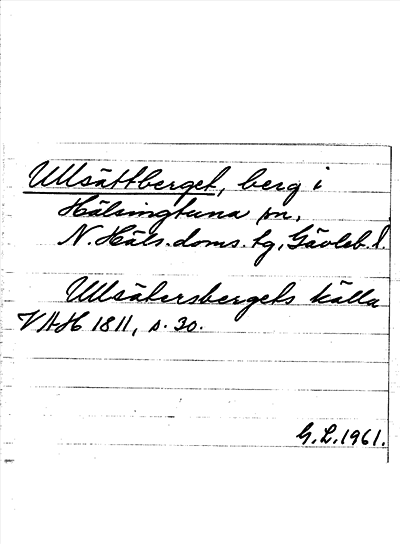 Ullsättberget, berg i
Hälsingtuna sn,
N. Häls. doms. tg, Gävleb. l.
Ullsätersbergets källa
VAH 1811, s. 30.
G.L. 1961.